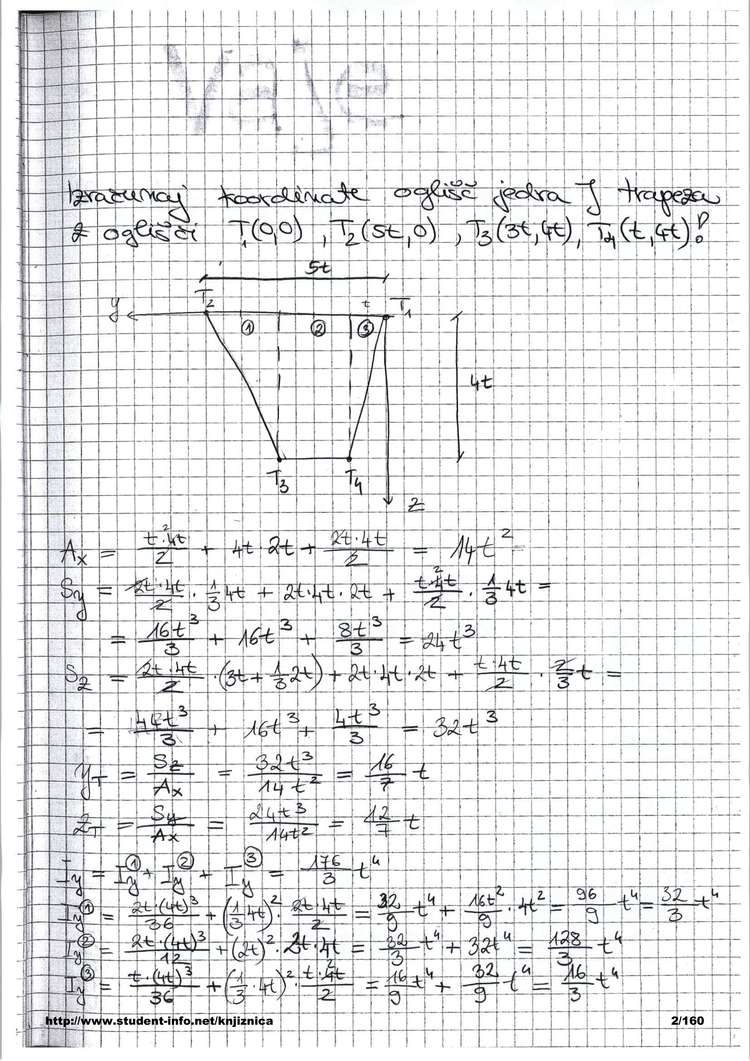 Vaje
Izračunaj koordinate oglišč jedra J trapeza
z oglišči T₁(0,0), T₂(5t,0), T₃(3t,4t), T₄(t,4t)!
5t
y T₂ t T₁
① ② ③
4t
T₃ T₄
z
Aₓ = t·4t/2 + 4t·2t + 2t·4t/2 = 14t²
Sy = 2t·4t/2 · 1/3 4t + 2t·4t·2t + t·4t/2 · 1/3 4t =
= 16t³/3 + 16t³ + 8t³/3 = 24t³
Sz = 2t·4t/2 · (3t + 1/3 2t) + 2t·4t·2t + t·4t/2 · 2/3 t =
= 44t³/3 + 16t³ + 4t³/3 = 32t³
y_T = Sz/Aₓ = 32t³/14t² = 16/7 t
z_T = Sy/Aₓ = 24t³/14t² = 12/7 t
Iy = Iy① + Iy② + Iy③ = 176/3 t⁴
Iy① = 2t·(4t)³/36 + (1/3 4t)² · 2t·4t/2 = 32/9 t⁴ + 16t²/9 · 4t² = 96/9 t⁴ = 32/3 t⁴
Iy② = 2t·(4t)³/12 + (2t)² · 2t·4t = 32/3 t⁴ + 32t⁴ = 128/3 t⁴
Iy③ = t·(4t)³/36 + (1/3 · 4t)² · t·4t/2 = 16/9 t⁴ + 32/9 t⁴ = 16/3 t⁴
http://www.student-info.net/knjiznica 2/160